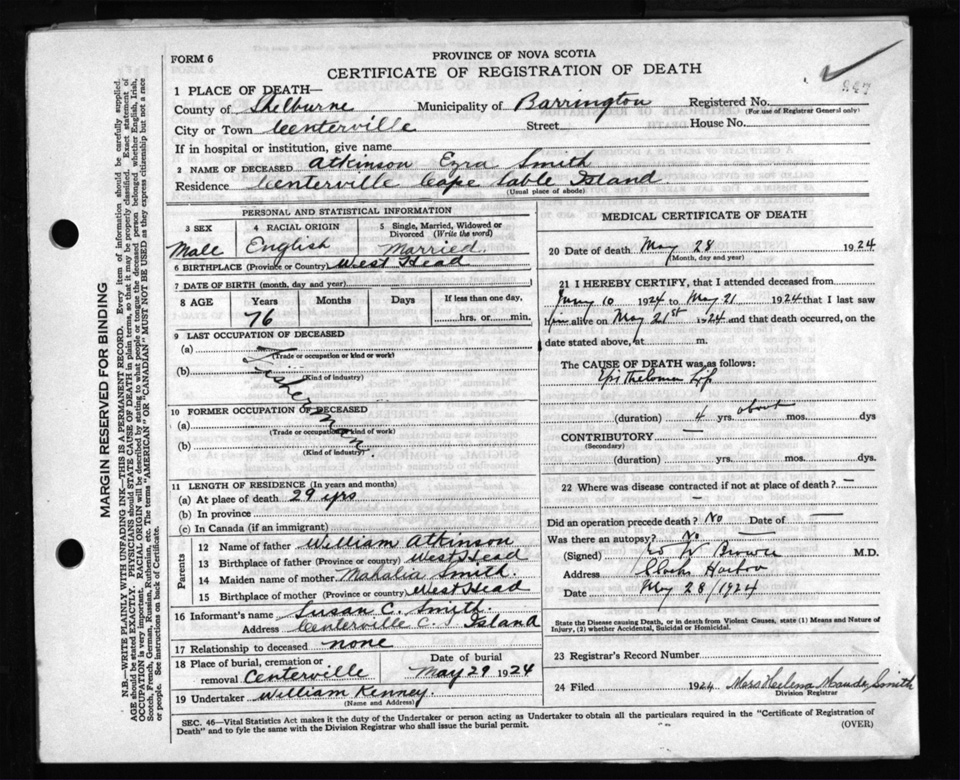 FORM 6
PROVINCE OF NOVA SCOTIA
CERTIFICATE OF REGISTRATION OF DEATH
247
1 PLACE OF DEATH—
County of Shelburne Municipality of Barrington Registered No.
(For use of Registrar General only)
City or Town Centerville Street House No.
If in hospital or institution, give name
2 NAME OF DECEASED Atkinson Ezra Smith
Residence Centerville Cape Sable Island.
(Usual place of abode)
PERSONAL AND STATISTICAL INFORMATION
3 SEX
Male
4 RACIAL ORIGIN
English
5 Single, Married, Widowed or Divorced (Write the word)
Married.
6 BIRTHPLACE (Province or Country) West Head
7 DATE OF BIRTH (month, day and year)
8 AGE Years Months Days If less than one day,
76 hrs. or min.
9 LAST OCCUPATION OF DECEASED
(a)
(Trade or occupation or kind or work)
(b)
(Kind of industry)
Fisherman.
10 FORMER OCCUPATION OF DECEASED
(a)
(Trade or occupation or kind of work)
(b)
(Kind of industry)
11 LENGTH OF RESIDENCE (In years and months)
(a) At place of death 29 yrs
(b) In province
(c) In Canada (if an immigrant)
Parents
12 Name of father William Atkinson
13 Birthplace of father (Province or country) West Head
14 Maiden name of mother Mahalia Smith.
15 Birthplace of mother (Province or country) West Head
16 Informant's name Susan C. Smith.
Address Centerville C. Island
17 Relationship to deceased none
18 Place of burial, cremation or removal Centerville
Date of burial
May 29 1924
19 Undertaker William Kenney.
(Name and Address)
MEDICAL CERTIFICATE OF DEATH
20 Date of death May 28 1924
(Month, day and year)
21 I HEREBY CERTIFY, that I attended deceased from
10 1924 to May 21 1924 that I last saw
him alive on May 21st 1924 and that death occurred, on the
date stated above, at m.
The CAUSE OF DEATH was as follows:
Epithelioma Lip
(duration) 4 yrs. about mos. dys
CONTRIBUTORY —
(Secondary)
(duration) yrs. mos. dys.
22 Where was disease contracted if not at place of death? —
—
Did an operation precede death? No Date of —
Was there an autopsy? No
(Signed) W Browne M.D.
Address Clarks Harbor
Date May 28/1924
State the Disease causing Death, or in death from Violent Causes, state (1) Means and Nature of Injury, (2) whether Accidental, Suicidal or Homicidal.
23 Registrar's Record Number
24 Filed 1924 Maude Smith
Division Registrar
SEC. 46—Vital Statistics Act makes it the duty of the Undertaker or person acting as Undertaker to obtain all the particulars required in the "Certificate of Registration of
Death" and to fyle the same with the Division Registrar who shall issue the burial permit. (OVER)
MARGIN RESERVED FOR BINDING
N.B.—WRITE PLAINLY WITH UNFADING INK—THIS IS A PERMANENT RECORD. Every item of information should be carefully supplied.
AGE should be stated EXACTLY. PHYSICIANS should STATE CAUSE OF DEATH in plain terms, so that it may be properly classified. Exact statement of
OCCUPATION is very important. RACIAL ORIGIN will be described by stating to what people or tongue the deceased person belonged whether English, Irish,
Scotch, French, German, Russian, Ruthenian, etc. The terms "AMERICAN" OR "CANADIAN" MUST NOT BE USED as they express citizenship but not a race
or people. See instructions on back of Certificate.